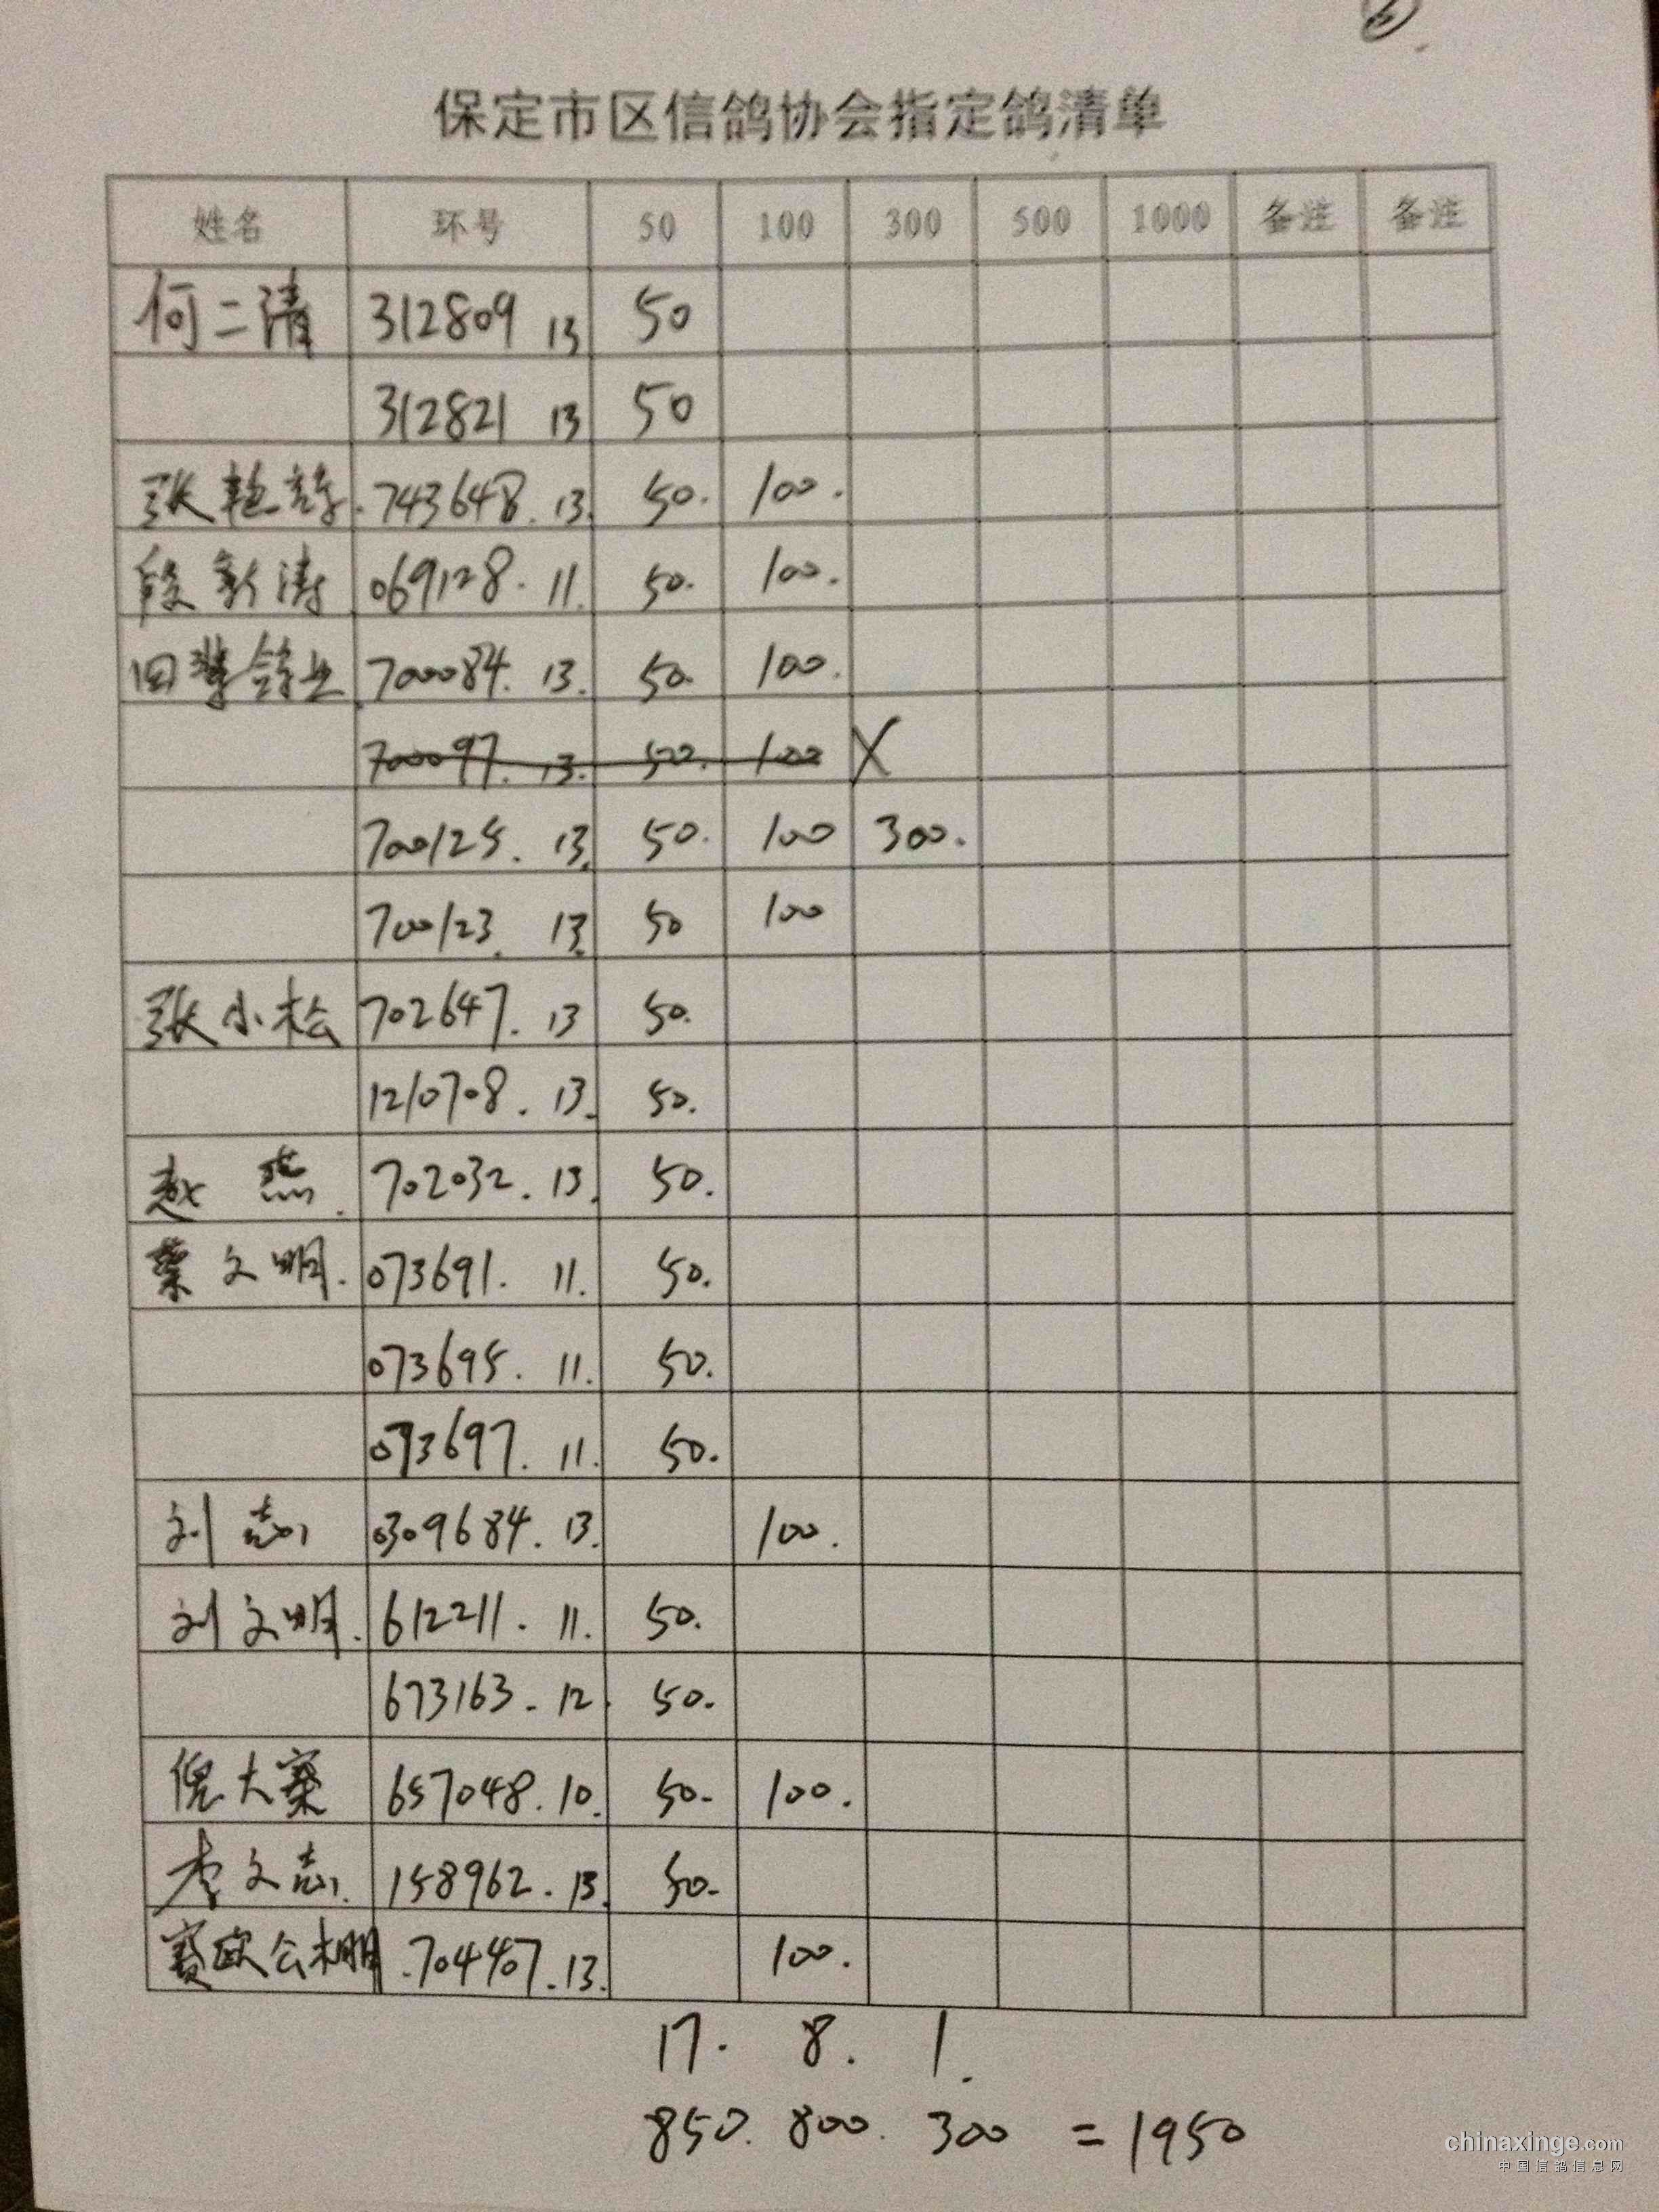 6
保定市区信鸽协会指定鸽清单
姓名 环号 50 100 300 500 1000 备注 备注
何二清 312809 13 50
312821 13 50
张艳 743648. 13. 50. 100.
段新涛 069128. 11. 50. 100.
田 鸽业 700084. 13. 50 100.
700097. 13. 50. 100 X
700125. 13. 50. 100 300.
700123. 13. 50 100
张小松 702647. 13 50.
1210708. 13. 50.
赵燕. 702032. 13. 50.
蔡文明. 073691. 11. 50.
073695. 11. 50.
073697. 11. 50.
刘志 0309684. 13. 100.
刘文明. 612211. 11. 50.
673163. 12. 50.
倪大寨 657048. 10. 50. 100.
李文志. 158962. 13. 50.
赛欧公棚 .704407. 13. 100.
17. 8. 1.
850. 800. 300 = 1950
chinaxinge.com
中国信鸽信息网